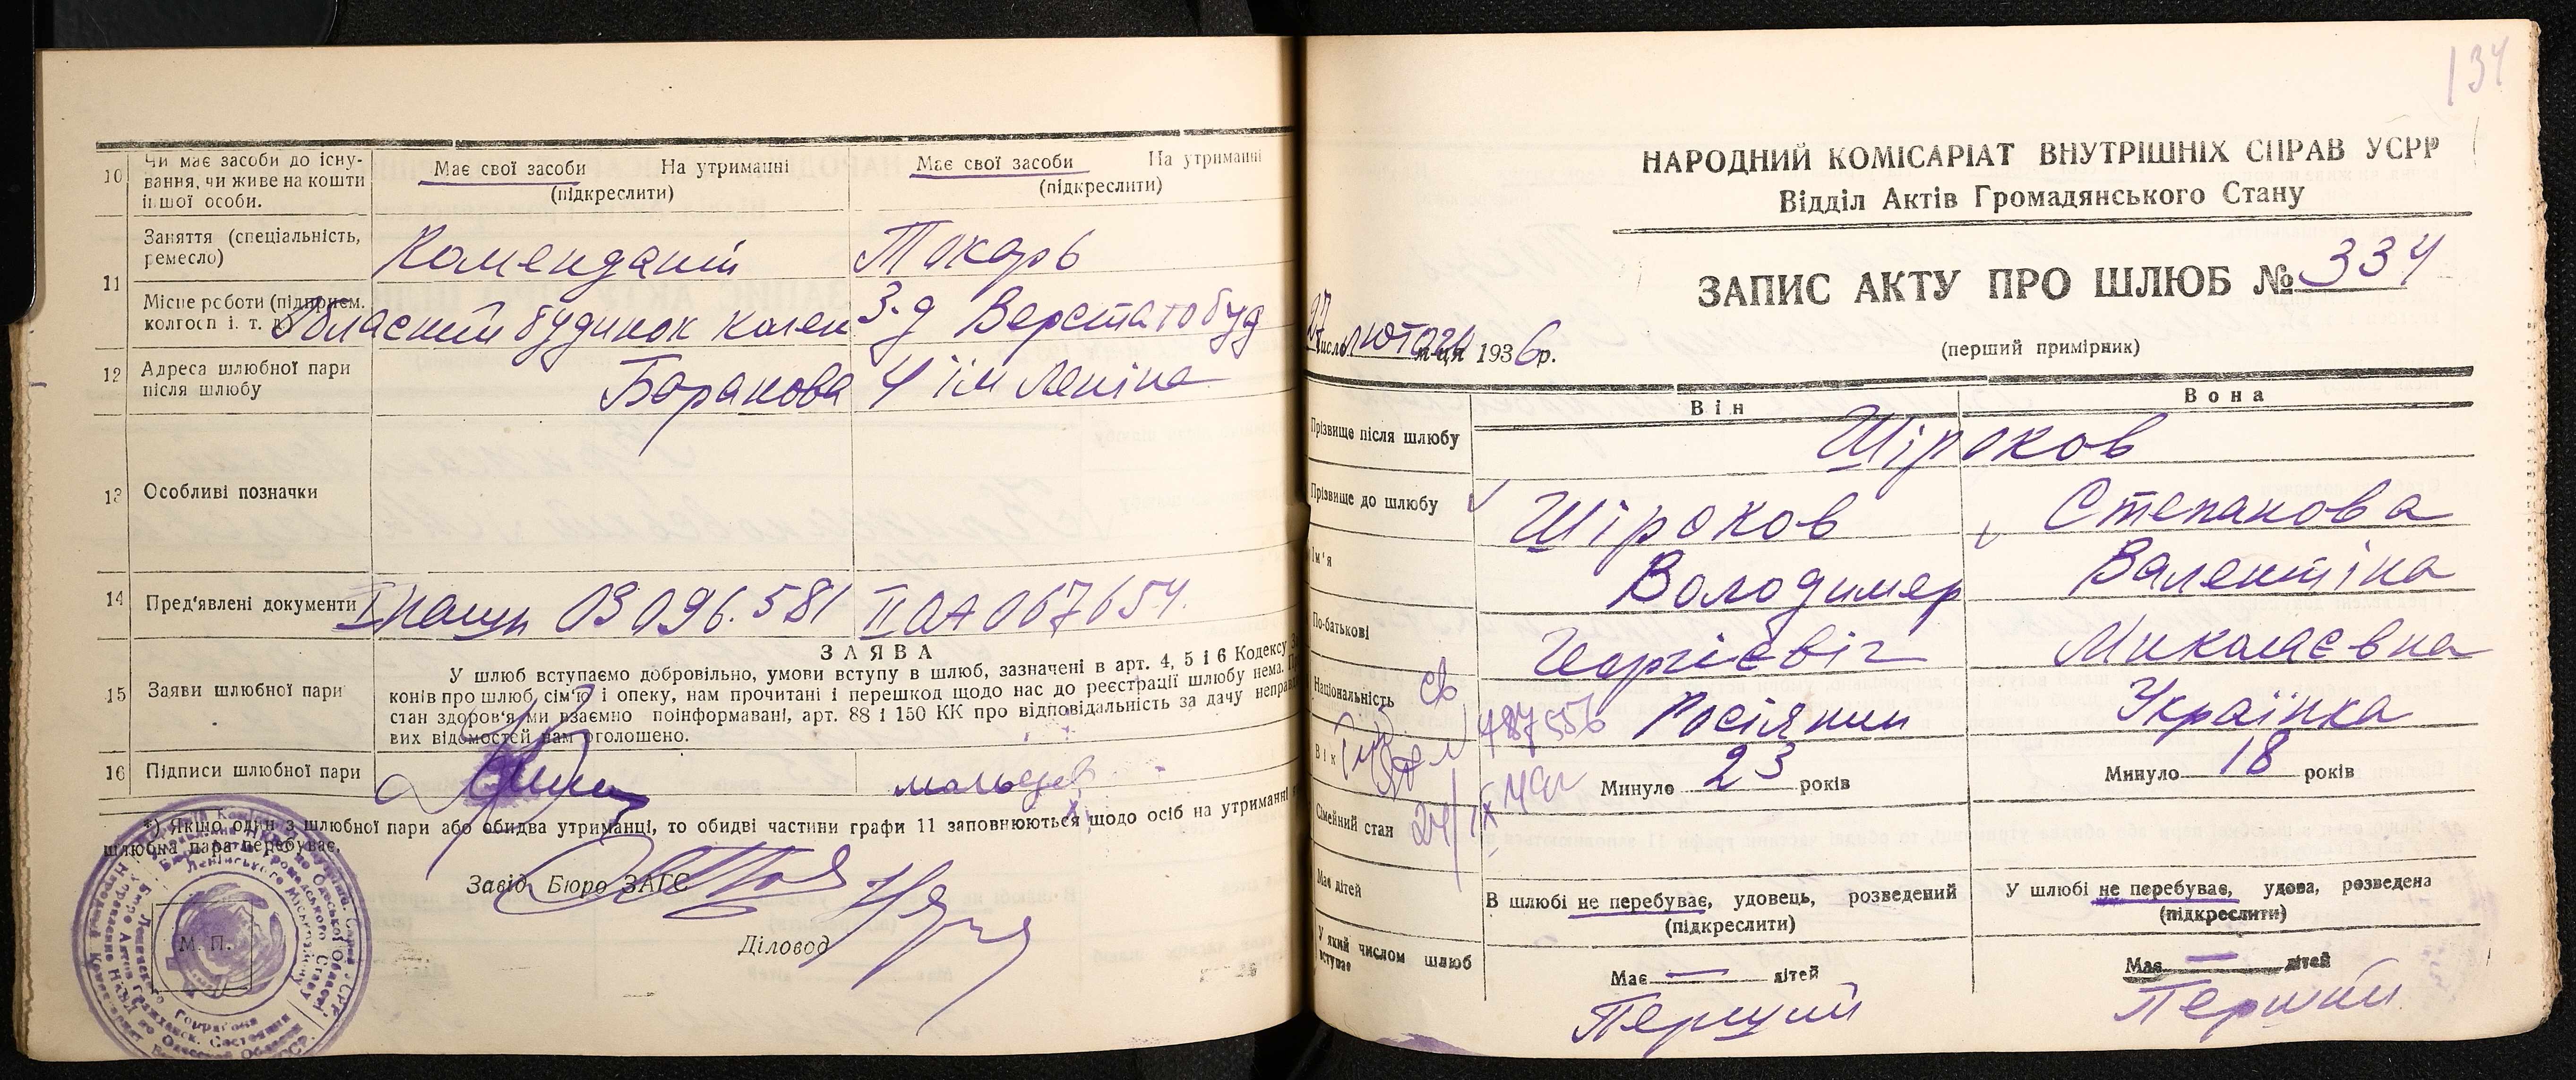 10
Чи має засоби до існу-
вання, чи живе на кошти
іншої особи.
Має свої засоби На утриманні
(підкреслити)
Має свої засоби На утриманні
(підкреслити)
11
Заняття (спеціальність,
ремесло)
Комендант
Токарь
Місце роботи (підприєм.
колгосп і. т.
Обласний будинок колен
З-д Верстатобуд
12
Адреса шлюбної пари
після шлюбу
Баранова 4 ім Леніна
13
Особливі позначки
14
Пред'явлені документи
096.581
II ОА 067654.
ЗАЯВА
15
Заяви шлюбної пари
У шлюб вступаємо добровільно, умови вступу в шлюб, зазначені в арт. 4, 5 і 6 Кодексу
конів про шлюб, сім'ю і опеку, нам прочитані і перешкод щодо нас до реєстрації шлюбу нема.
стан здоров'я ми взаємно поінформавані, арт. 88 і 150 КК про відповідальність за дачу неправд
вих відомостей нам оголошено.
16
Підписи шлюбної пари
*) Якщо один з шлюбної пари або обидва утриманці, то обидві частини графи 11 заповнюються щодо осіб на утриманні
шлюбна пара перебуває.
Завід. Бюро ЗАГС
Діловод
М. П.
134
НАРОДНИЙ КОМІСАРІАТ ВНУТРІШНІХ СПРАВ УСРР
Відділ Актів Громадянського Стану
ЗАПИС АКТУ ПРО ШЛЮБ № 334
27 числа лютого м-ця 1936 р.
(перший примірник)
Він
Вона
Прізвище після шлюбу
Шіроков
Прізвище до шлюбу
Шіроков
Степанова
Ім'я
Володимер
Валентіна
По-батькові
Георгієвіч
Миколаєвна
Національність
Росіянин
Українка
Вік
Минуло 23 років
Минуло 18 років
Сімейний стан
В шлюбі не перебуває, удовець, розведений
(підкреслити)
У шлюбі не перебуває, удова, розведена
(підкреслити)
Має дітей
Має — дітей
Має — дітей
У який числом шлюб
вступає
Перший
Перший